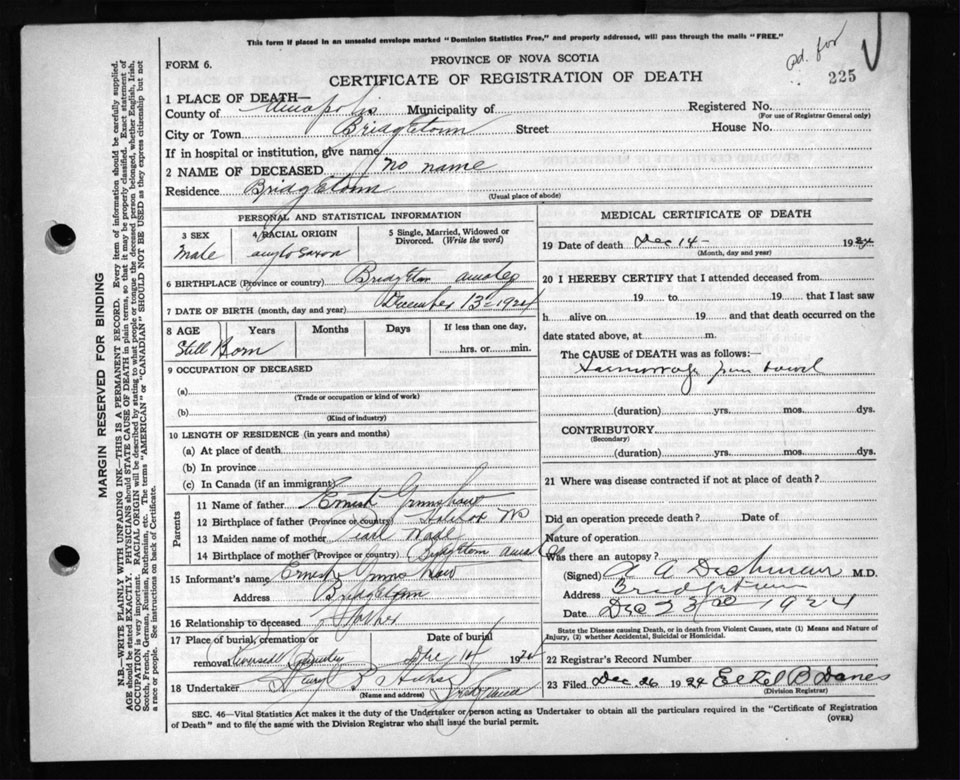 This form if placed in an unsealed envelope marked "Dominion Statistics Free," and properly addressed, will pass through the mails "FREE."
pd. for
225
FORM 6.
PROVINCE OF NOVA SCOTIA
CERTIFICATE OF REGISTRATION OF DEATH
1 PLACE OF DEATH—
County of Annapolis Municipality of Registered No.
(For use of Registrar General only)
City or Town Bridgetown Street House No.
If in hospital or institution, give name
2 NAME OF DECEASED no name
Residence Bridgetown
(Usual place of abode)
PERSONAL AND STATISTICAL INFORMATION
3 SEX 4 RACIAL ORIGIN 5 Single, Married, Widowed or Divorced. (Write the word)
Male anglo Saxon
6 BIRTHPLACE (Province or country) Bridgetown
7 DATE OF BIRTH (month, day and year) December 13 1924
8 AGE Years Months Days If less than one day,
Still Born hrs. or min.
9 OCCUPATION OF DECEASED
(a)
(Trade or occupation or kind of work)
(b)
(Kind of industry)
10 LENGTH OF RESIDENCE (in years and months)
(a) At place of death
(b) In province
(c) In Canada (if an immigrant)
Parents
11 Name of father Ernest
12 Birthplace of father (Province or country) Halifax
13 Maiden name of mother Pearl
14 Birthplace of mother (Province or country) Bridgetown
15 Informant's name Ernest
Address Bridgetown
16 Relationship to deceased Father
17 Place of burial, cremation or Date of burial
removal Riverside Dec 14 1924
18 Undertaker
(Name and address)
MEDICAL CERTIFICATE OF DEATH
19 Date of death Dec 14 - 1924
(Month, day and year)
20 I HEREBY CERTIFY that I attended deceased from
19 to 19 that I last saw
h alive on 19 and that death occurred on the
date stated above, at m.
The CAUSE of DEATH was as follows:—
Haemorrhage from bowel
(duration) yrs. mos. dys.
CONTRIBUTORY
(Secondary)
(duration) yrs. mos. dys.
21 Where was disease contracted if not at place of death?
Did an operation precede death? Date of
Nature of operation
Was there an autopsy?
(Signed) A A Dechman M.D.
Address Bridgetown
Date Dec 23rd 1924
State the Disease causing Death, or in death from Violent Causes, state (1) Means and Nature of Injury, (2) whether Accidental, Suicidal or Homicidal.
22 Registrar's Record Number
23 Filed Dec. 26 1924 Ethel B
(Division Registrar)
SEC. 46—Vital Statistics Act makes it the duty of the Undertaker or person acting as Undertaker to obtain all the particulars required in the "Certificate of Registration
of Death" and to file the same with the Division Registrar who shall issue the burial permit.
(OVER)
MARGIN RESERVED FOR BINDING
N.B.—WRITE PLAINLY WITH UNFADING INK—THIS IS A PERMANENT RECORD. Every item of information should be carefully supplied.
AGE should be stated EXACTLY. PHYSICIANS should STATE CAUSE OF DEATH in plain terms, so that it may be properly classified. Exact statement of
OCCUPATION is very important. RACIAL ORIGIN will be described by stating to what people or tongue the deceased person belonged, whether English, Irish,
Scotch, French, German, Russian, Ruthenian, etc. The terms "AMERICAN" or "CANADIAN" SHOULD NOT BE USED as they express citizenship but not
a race or people. See instructions on back of Certificate.